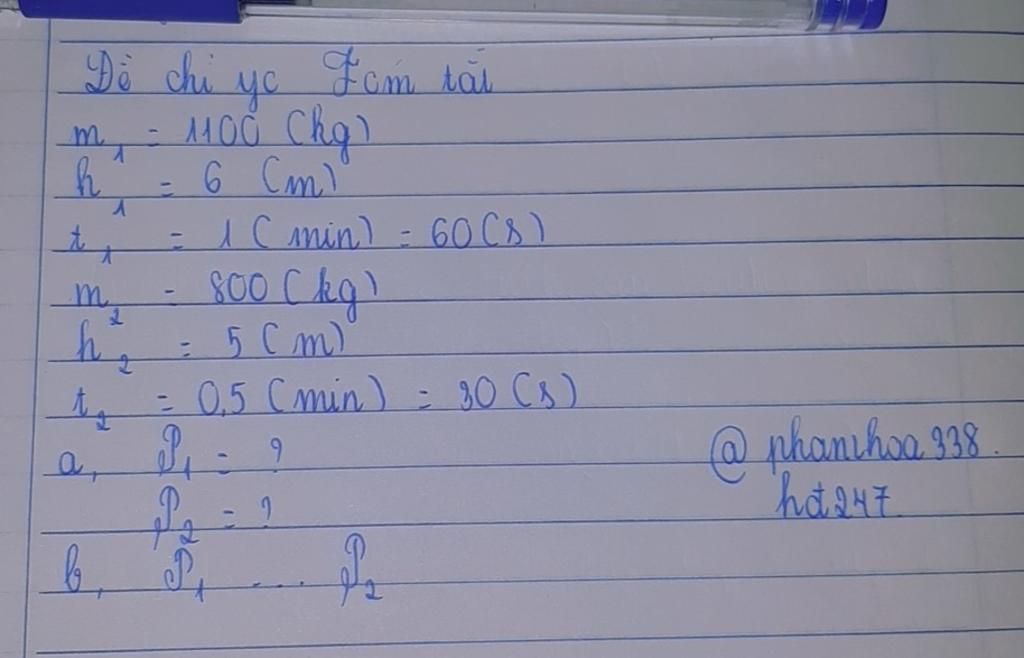 Đề chỉ yc Tóm tắt
m₁ = 1100 (kg)
h₁ = 6 (m)
t₁ = 1 (min) = 60 (s)
m₂ = 800 (kg)
h₂ = 5 (m)
t₂ = 0,5 (min) = 30 (s)
a, 𝒫₁ = ?
𝒫₂ = ?
@phanthoa338.
hđ247
b, 𝒫₁ .... 𝒫₂